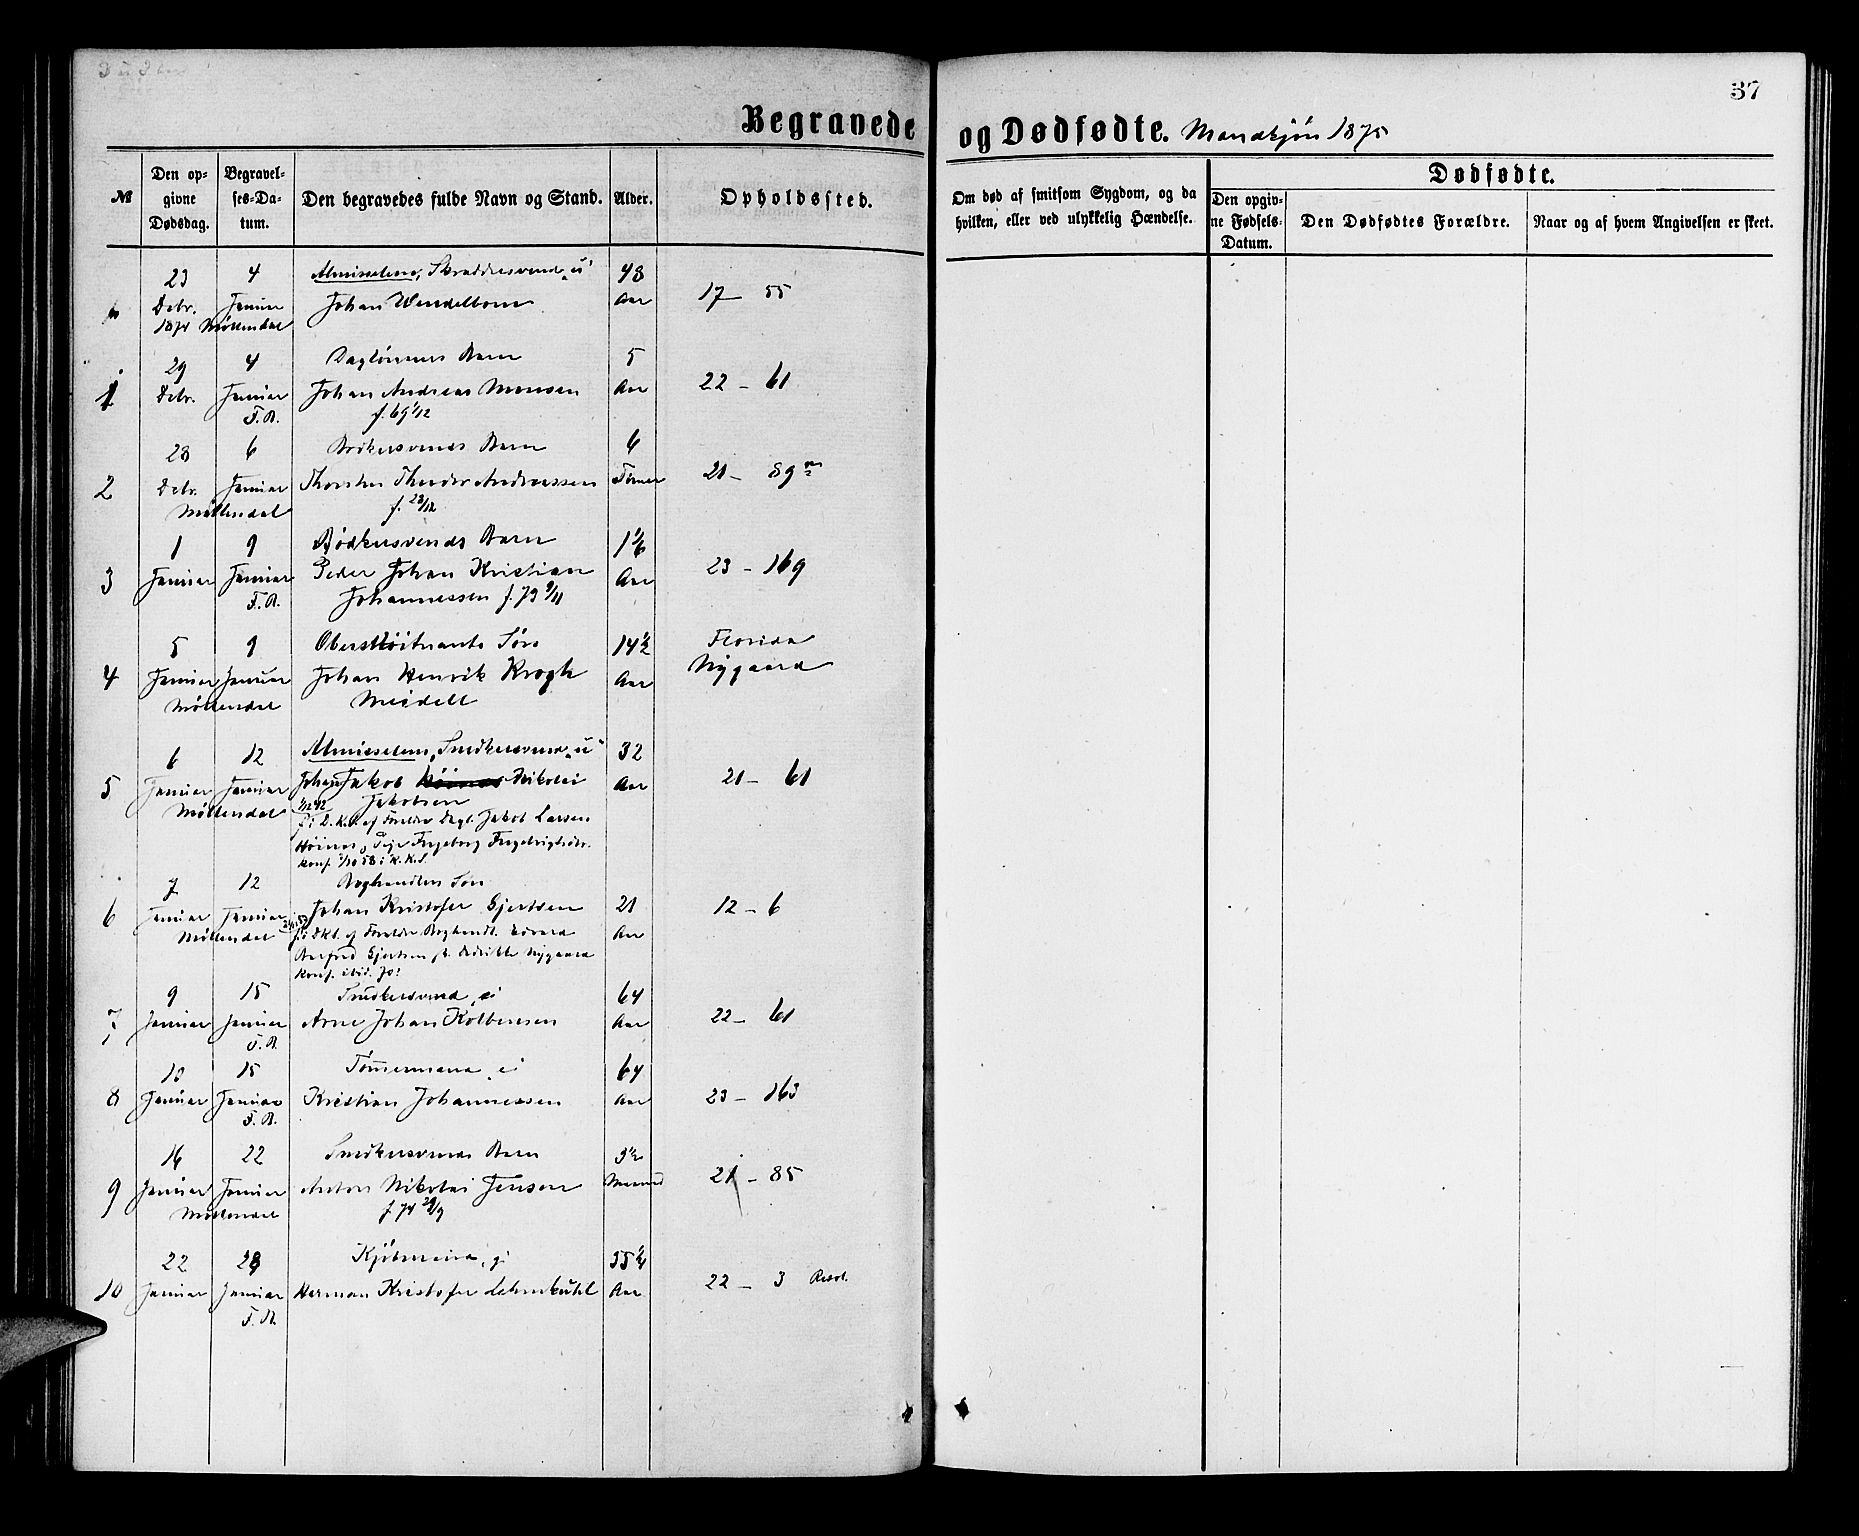 37
Begravede og Dødfødte. Mandkjön 1875
№
Den op-
givne
Dødsdag.
Begravel-
ses-Da-
tum.
Den begravedes fulde Navn og Stand.
Alder.
Opholdssted.
Om død af smitsom Sygdom, og da
hvilken, eller ved ulykkelig Hændelse.
Dødfødte.
Den opgiv-
ne Fødsels-
Datum.
Den Dødfødtes Forældre.
Naar og af hvem Angivelsen er skeet.
23 4 Almisselem, Skræddersvend, u 48
Debr. Januar Johan Wendelbom Aar 17 – 55
1874 Möllendal
29 4 Daglönners Barn 5
1 Debr. Januar Johan Andreas Monsen Aar 22 – 61
F. R. f. 69 1/12
28 6 Barn 6
2 Debr. Januar Andreassen Timer 21 – 89
Möllendal f. 28/12
1 9 Bödkersvends Barn 1 1/6
3 Januar Januar Peder Johan Kristian Aar 23 – 169
F. R. Johannessen f. 73 9/11
5 9 Oberstlöitnants Sön 14 1/2 Florida
4 Januar Januar Johan Henrik Krogh Aar Nygaard
Möllendal Meidell
6 12 Almisselem, Snedkersvend, u 32
5 Januar Januar Johan Jakob Nikolai Aar 21 – 61
Möllendal Jakobsen
f. i D. K. af Forældre Dagl. Jakob Larsen
Höines og Pige Ingeborg
konf. 1/10 58 i K. K.
7 12 Boghandlers Sön
6 Januar Januar Johan Kristofer Gjertsen 21 12 – 6
Möllendal f. i Dkl. af Forældre Boghandl. Edvard Aar
Gjertsen Nygaard
konf. ibid.
9 15 Snedkersvend, ei 64
7 Januar Januar Arne Johan Kolbensen Aar 22 – 61
F. R.
10 15 Tömmermand, ei 64
8 Januar Januar Kristian Johannessen Aar 23 – 163
F. R.
16 22 Snedkersvends Barn 3 1/2
9 Januar Januar Anton Nikolai Jensen Maaned 21 – 85
Möllendal f. 74 29/9
22 28 Kjöbmand, gi 55 1/4
10 Januar Januar Herman Kristofer Lehmkuhl Aar 22 – 3
F. R.